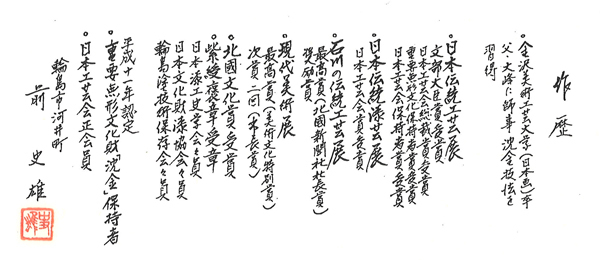 作歴
。金沢美術工芸大学(日本画)卒
父・大峰に師事 沈金技法を
習得
。日本伝統工芸展
文部大臣賞受賞
日本工芸会総裁賞受賞
重要無形文化財保持者賞受賞
日本工芸会保持者賞受賞
。日本伝統漆芸展
日本工芸会賞受賞
。石川の伝統工芸展
最高賞(北國新聞社社長賞)
奨励賞
。現代美術展
最高賞(美術文化特別賞)
次賞 二回(市長賞)
。北國文化賞受賞
。紫綬褒章受章
日本漆工協会々員
日本文化財漆協会々員
輪島塗技術保存会々員
平成十一年認定
。重要無形文化財「沈金」保持者
。日本工芸会正会員
輪島市河井町
前 史雄